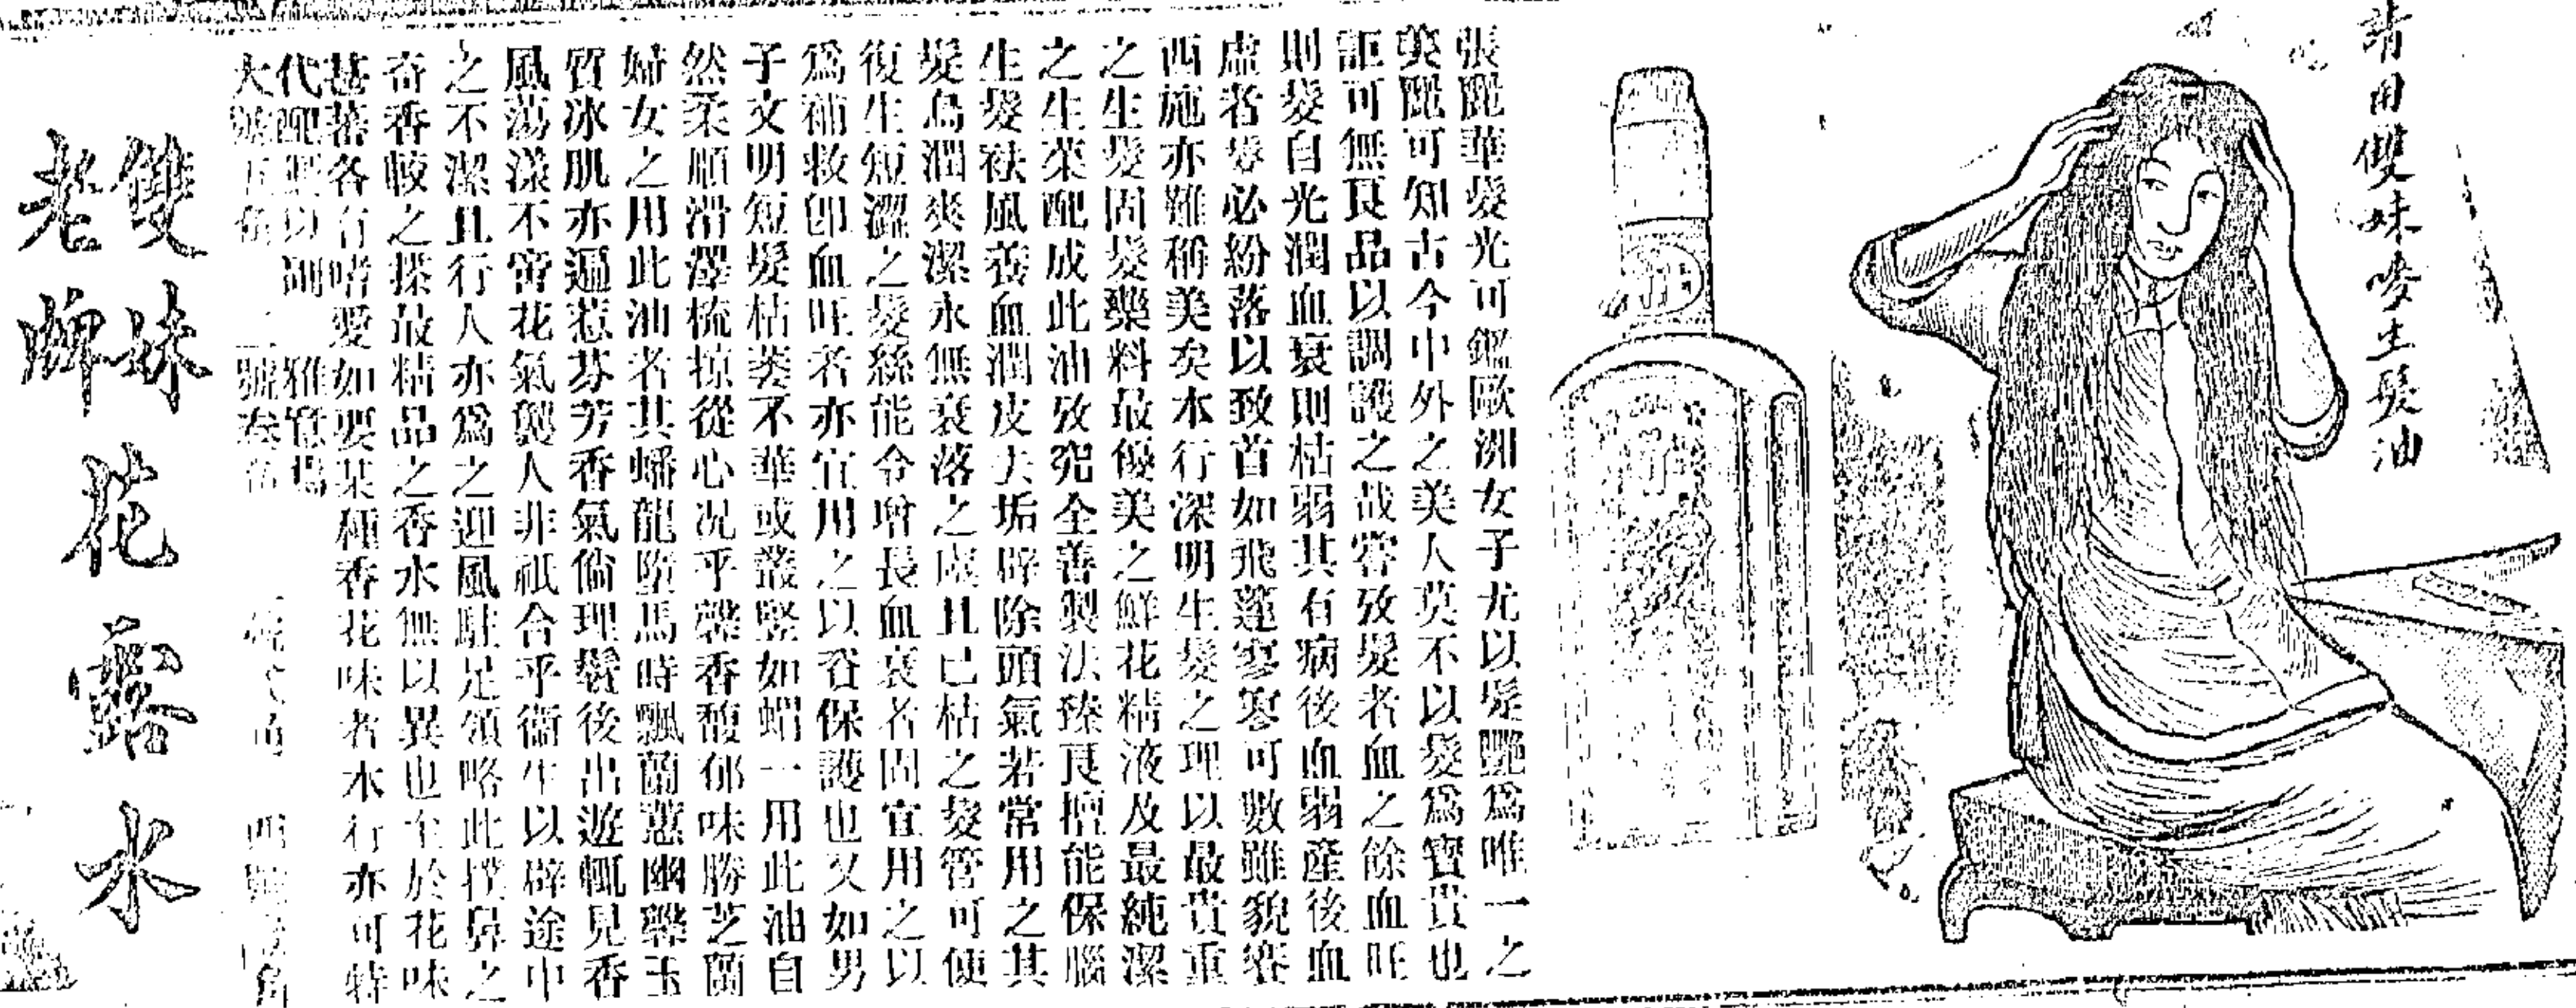 請用雙妹嚜生髮油
張麗華髮光可鑑歐洲女子尤以髮艷爲唯一之
美麗可知古今中外之美人莫不以髮爲寶貴也
詎可無良品以調護之哉嘗攷髮者血之餘血旺
則髮自光潤血衰則枯弱其有病後血弱產後血
虛者髮必紛落以致首如飛蓬寥寥可數雖貌賽
西施亦難稱美矣本行深明生髮之理以最貴重
之生髮固髮藥料最優美之鮮花精液及最純潔
之生菜配成此油攷究全善製法臻良擅能保腦
生髮祛風養血潤皮去垢辟除頭氣若常用之其
髮烏潤爽潔永無衰落之虞且已枯之髮管可使
復生短澀之髮絲能令增長血衰者固宜用之以
爲補救卽血旺者亦宜用之以資保護也又如男
子文明短髮枯萎不華或叢豎如蝟一用此油自
然柔順滑澤梳掠從心况乎馨香馥郁味勝芝蘭
婦女之用此油者其蟠龍墮馬時飄蘭蕙幽馨玉
質冰肌亦遍惹芬芳香氣倘理鬢後出遊輒見香
風蕩漾不啻花氣襲人非祇合乎衞生以辟途中
之不潔且行人亦爲之迎風駐足領略此撲鼻之
奇香較之搽最精品之香水無以異也至於花味
甚蕃各有嗜愛如要某種香花味者本行亦可特
代配
大號五
二號
雙妹
老牌
花露水